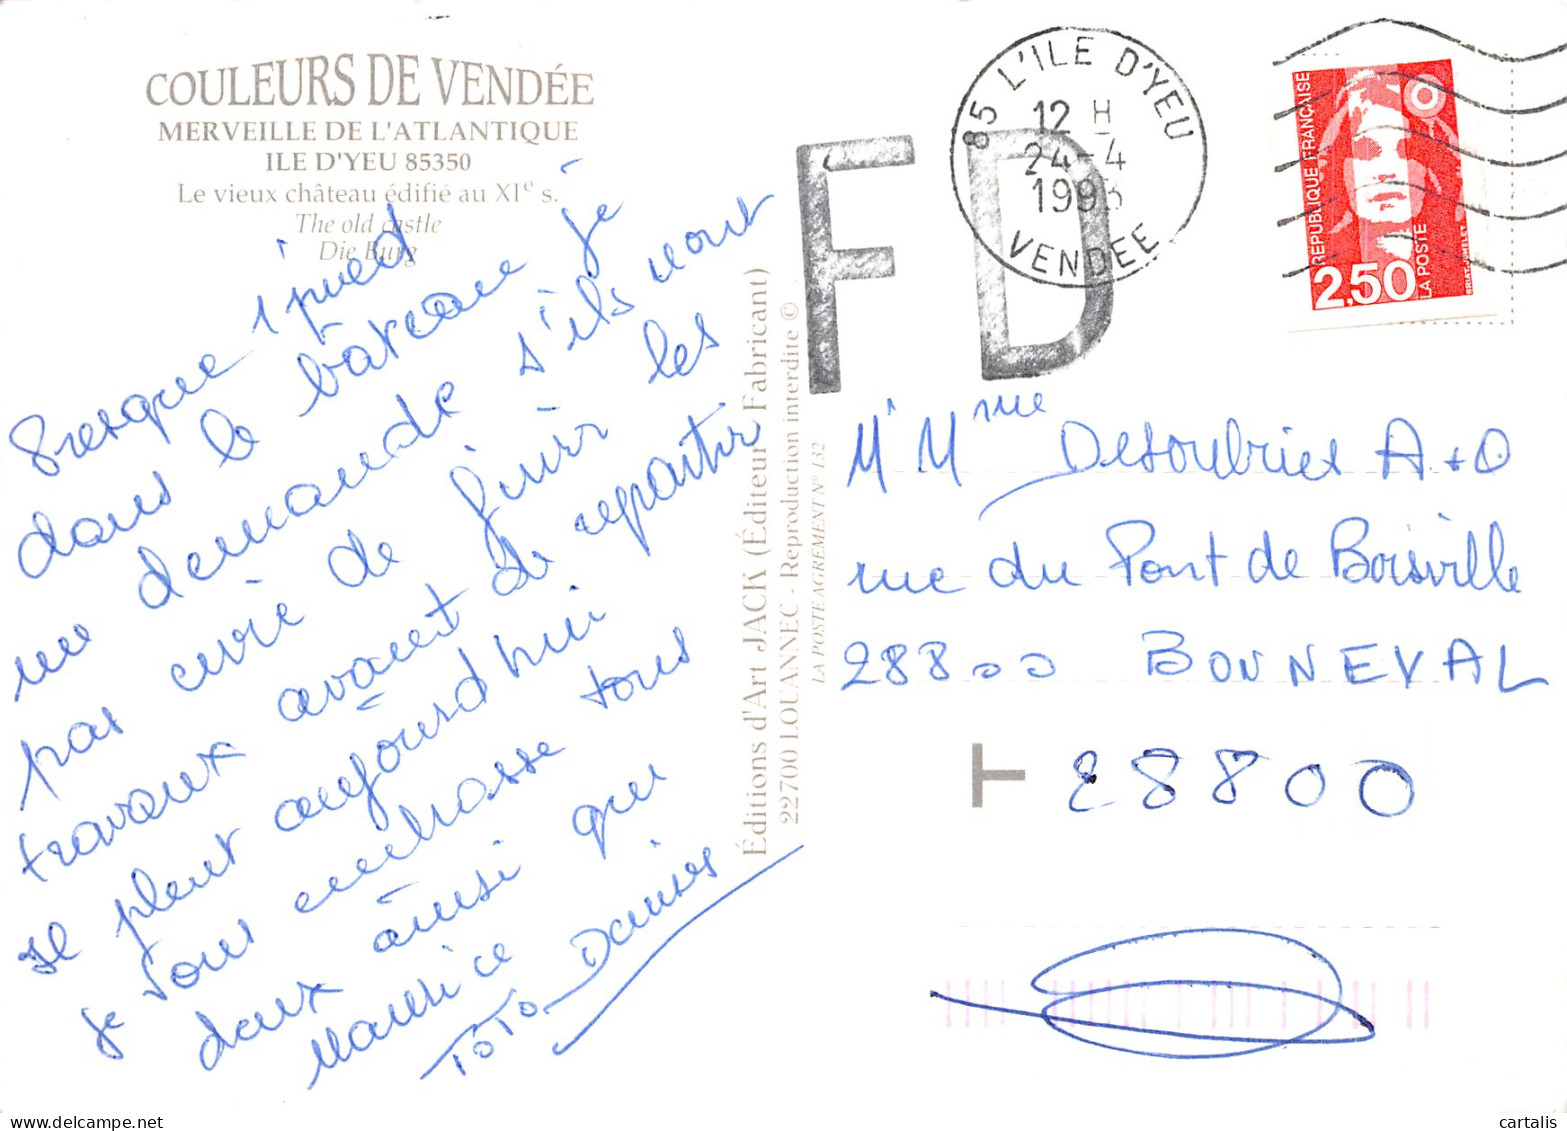 COULEURS DE VENDÉE
MERVEILLE DE L'ATLANTIQUE
ILE D'YEU 85350
Le vieux château édifié au XIe s.
The old castle
Die Burg
Presque 1 pied
dans le bateau je
me demande s'ils vont
pas envie de finir les
travaux avant de repartir
Il pleut aujourd'hui
je vous embrasse tous
deux ainsi que
Maurice
TOTO Denise
Éditions d'Art JACK (Éditeur Fabricant)
22700 LOUANNEC - Reproduction interdite ©
LA POSTE AGRÉMENT N° 132
85 L'ILE D'YEU
12 H
24-4
1996
VENDEE
FD
RÉPUBLIQUE FRANÇAISE
LA POSTE
2,50
Mr Mme Desoubries A + O
rue du Pont de Boisville
28800 BONNEVAL
T 28800